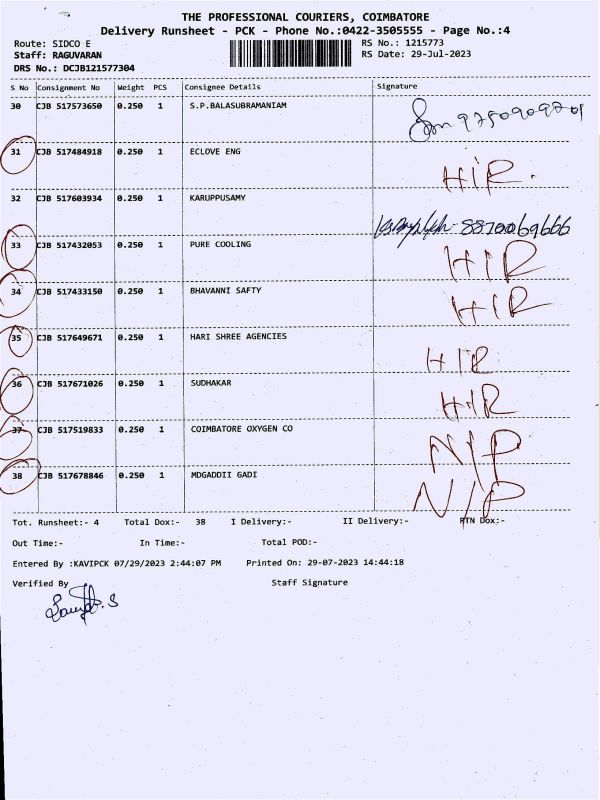 THE PROFESSIONAL COURIERS, COIMBATORE
Delivery Runsheet - PCK - Phone No.:0422-3505555 - Page No.:4
Route: SIDCO E RS No.: 1215773
Staff: RAGUVARAN RS Date: 29-Jul-2023
DRS No.: DCJB121577304
S No Consignment No Weight PCS Consignee Details Signature
30 CJB 517573650 0.250 1 S.P.BALASUBRAMANIAM
31 CJB 517484918 0.250 1 ECLOVE ENG HIR.
32 CJB 517603934 0.250 1 KARUPPUSAMY 8870069666
33 CJB 517432053 0.250 1 PURE COOLING HIR
34 CJB 517433150 0.250 1 BHAVANNI SAFTY HIR
35 CJB 517649671 0.250 1 HARI SHREE AGENCIES HIR
36 CJB 517671026 0.250 1 SUDHAKAR HIR
37 CJB 517519833 0.250 1 COIMBATORE OXYGEN CO N/P
38 CJB 517678846 0.250 1 MDGADDII GADI N/P
Tot. Runsheet:- 4 Total Dox:- 38 I Delivery:- II Delivery:- RTN Dox:-
Out Time:- In Time:- Total POD:-
Entered By :KAVIPCK 07/29/2023 2:44:07 PM Printed On: 29-07-2023 14:44:18
Verified By Staff Signature